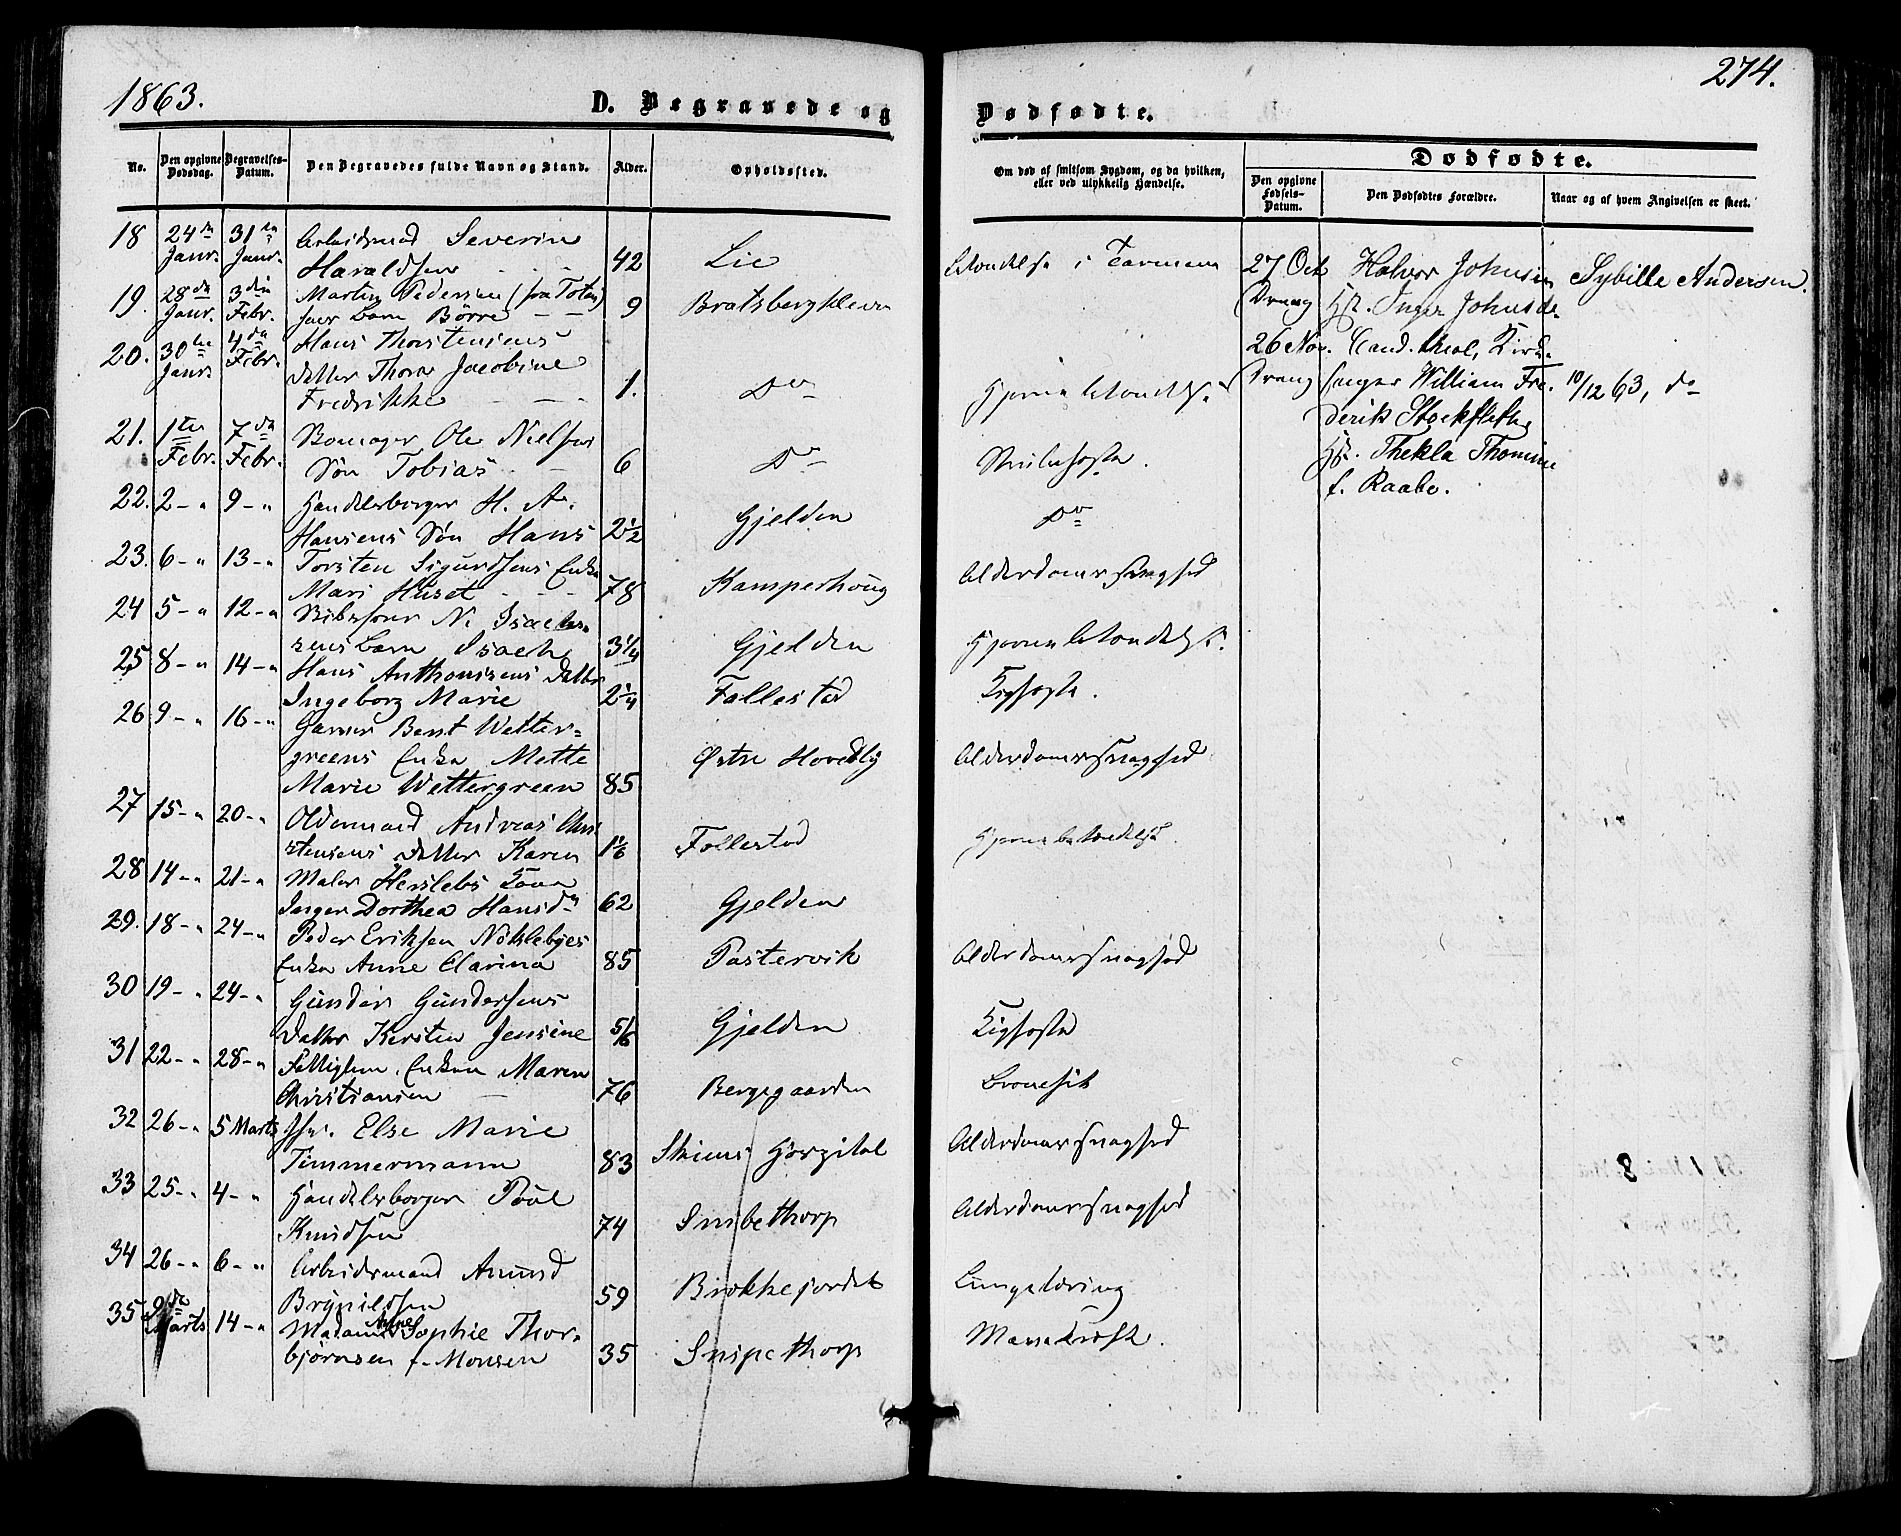 1863.
D. Begravede og
Dødfødte.
274.
No.
Den opgivne Dødsdag.
Begravelses-Datum.
Den Begravedes fulde Navn og Stand.
Alder.
Opholdssted.
Om død af smitsom Sygdom, og da hvilken,
eller ved ulykkelig Hændelse.
Dødfødte.
Den opgivne Fødsels-Datum.
Den Dødfødtes Forældre.
Naar og af hvem Angivelsen er skeet.
18 24de Janr. 31te Janr. Arbeidsmand Severin
Haraldsen 42 Lie Betændelse i Tarmene
19. 28de Janr. 3die Febr. Martin Pedersen (fra Toten)
Barn Börre 9 Bratsbergkleven
20. 30te Janr. 4de Febr. Hans Thorstensens
Datter Thora Jacobine
Fredrikke 1. Do Hjernebetændelse
21. 1te Febr. 7de Febr. Bomager Ole Nielsens
Søn Tobias 6 Do Strubehoste.
22. 2-" 9-" Handelsborger H. A.
Hansens Søn Hans 2½ Gjelden Do
23. 6-" 13-" Torsten Sigurdsens Enke
Mari Huset 78 Kamperhoug Alderdomssvaghed
24 5-" 12-" N. Isach-
sens Barn Isach 3¼ Gjelden Hjernebetændelse
25 8-" 14-" Hans Anthonisens Datter
Ingeborg Marie 2¼ Follestad Kighoste.
26 9-" 16-" Garver Bent Wetter-
greens Enke Mette
Marie Wettergreen 85 Østre Hovedlij Alderdomssvaghed
27 15-" 20-" Oldermand Andreas Chri
stensens Datter Karen 1⅙ Follestad Hjernebetændelse.
28 14-" 21-" Maler Herslebs Kone
Inger Dorthea Hansdr 62 Gjelden
29. 18-" 24-" Peder Eriksen Nöklebyes
Enke Anne Clarina 85 Pastervik Alderdomssvaghed
30 19-" 24-" Gunder Gundersens
Datter Kirsten Jensine 5/6 Gjelden Kighoste
31 22-" 28-" Fattiglem, Enken Maren
Christiansen 76 Bergegaarden Brovesik
32 26-" 5 Marts Jfr. Else Marie
Timmermann 83 Skiens Hospital Alderdomssvaghed
33 25-" 4-" Handelsborger Poul
Knudsen 74 Snibethorp Alderdomssvaghed
34 26-" 6-" Arbeidsmand Amund
Brynildsen 59 Brokkejordet Lungetæring
35 9de Marts 14-" Madame Anne Sophie Thor-
bjørnsen f. Monsen 35 Snipethorp Mavekræft.
27 Oct. Dreng Halvor Johnsen Sybille Andersen.
Hst. Inger Johnsdr.
26 Nov. Dreng Cand. theol, Kirke-
sanger William Fre- 10/12 63, do
derik Stockfleth,
Hst. Thekla Thomine
f. Raabe.